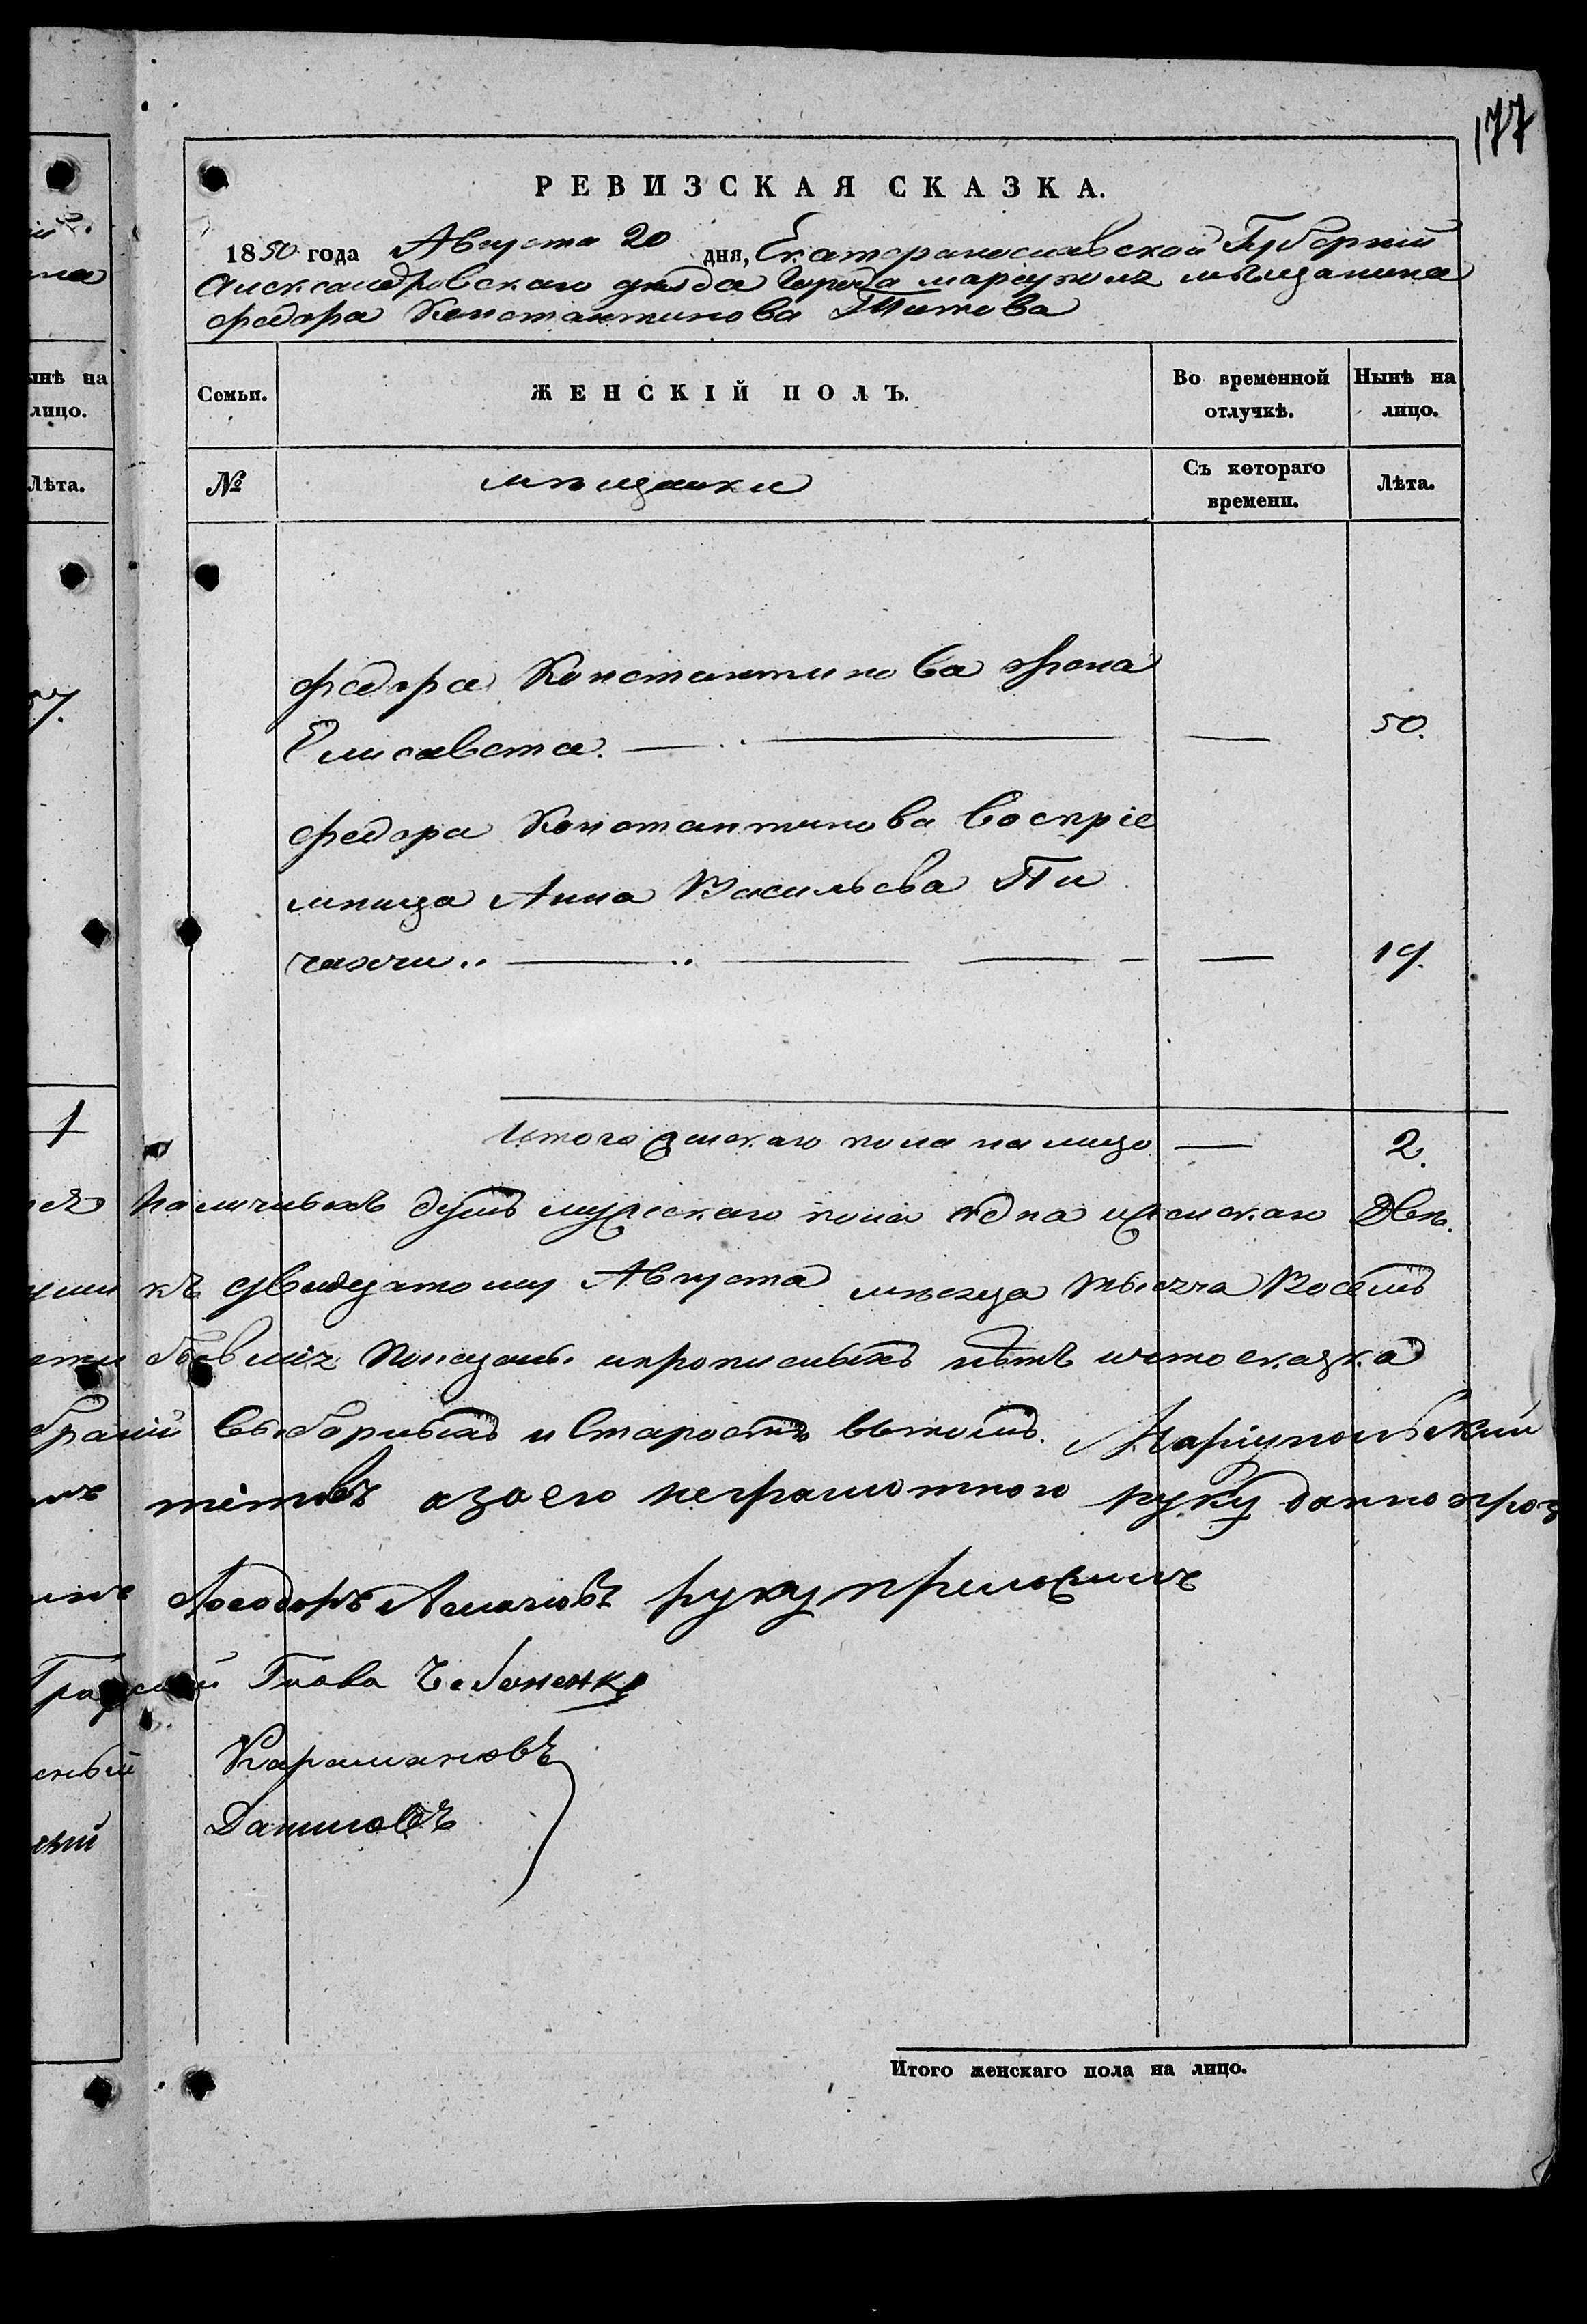 177
РЕВИЗСКАЯ СКАЗКА.
1850 года Августа 20 дня, Екатеринославской Губерніи
Александровскаго уѣзда Города маріуполя мѣщанина
федора Константинова Титова
ынѣ на
лицо.
Лѣта.
Семьи.
ЖЕНСКІЙ ПОЛЪ.
Во временной отлучкѣ.
Нынѣ на лицо.
№
мѣщанки
Съ котораго времени.
Лѣта.
федора Константинова жена
Елисавета. — — — 50.
федора Константинова воспріе
мница Анна Васильева Пи
чахчи — — — 19.
1
Итого женскаго пола на лицо — 2.
наличныхъ душъ мужескаго пола одна и женскаго Двѣ.
къ двидцатому Августа мѣсяца тысяча Восемь
бывших и прописныхъ нѣтъ и что сказка
браній выборныхъ и Старостъ Маріупольскій
тітовъ а за его неграмотного руку
Феодоръ руку приложилъ
Градской Глова Чебаненко
Карамановъ
Даниловъ
Итого женскаго пола на лицо.